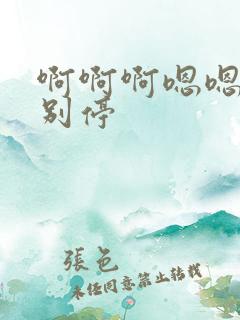 啊啊啊嗯嗯
别停
張邑
未经同意禁止转载